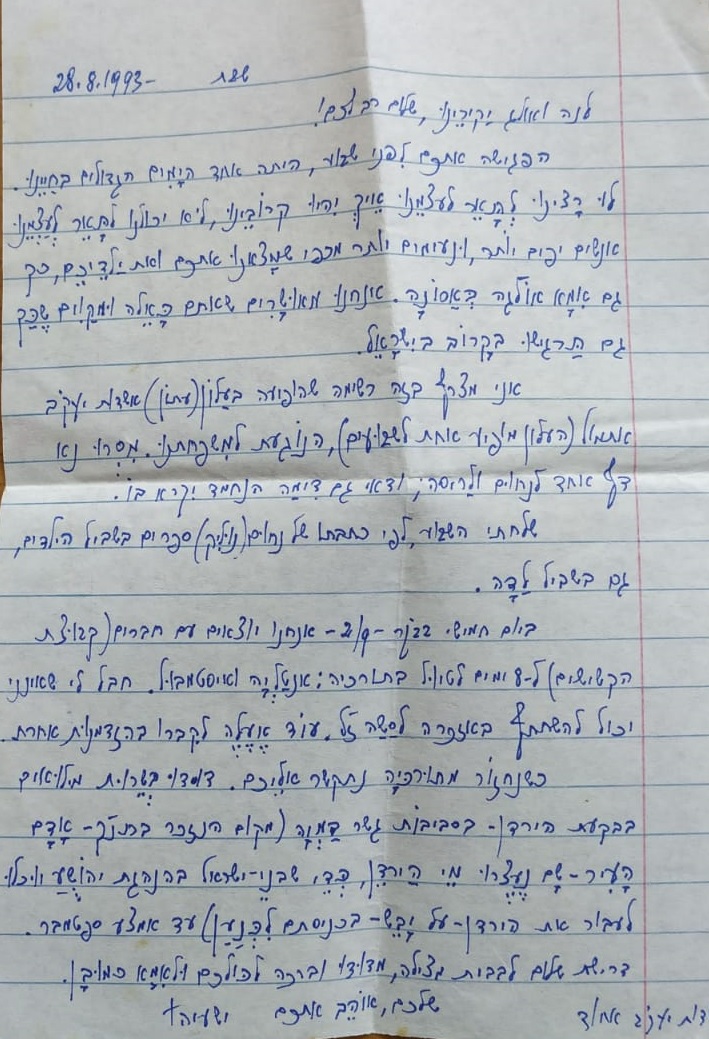 שבת -28.8.1993
לנה ואולג יקירינו, שלום רב לכם!
הפגישה אתכם לִפני שבוע, היתה אחד הַיָמִים הגדולים בחַיֵינוּ.
לוּ רָצִינוּ לְתָאֵר לְעצמֵנוּ אֵיךְ יִהיוּ קרוֹבֵינוּ, לֹא יכולנו לְתָאֵר לְעַצְמֵנוּ
אנשים יפים יותר, ונעימים יותר מכפי שמָצאנוּ אתכם ואת יַלדֵיכֶם, כך
גם אִמָא אוֹלגה בְּאֶסטוֹנִיָה. אנחנו מאוּשָרים שאתם כָּאֵלה וּמקַוִים שֶכָּךְ
גם תַרגישוּ בְּקָרוֹב בְּישׂרָאֵל.
אני מצרף בזה רשימה שהופיעה בעלון (עתון) אשדות יעקב
אתמול (העלון מופיע אחת לשבועיים), הנוֹגעת למִשפחתנוּ. מִסרוּ נא
דף אחד לנחוּם וְלָרִיסה; ודאי גם דִימָה הנחמד יקרא בו.
שלחתי השבוע, לפי כתבתו של נחום (נוליק) ספרים בשביל הילדים,
גם בשביל לָדָה.
ביום חמישי בבֹקר -2/9- אנחנו יוצאים עם חברים (קבוצת
הקשישים) ל-8 ימים לטיול בתורכיה: אַנטַלִיָה ואיסטמבול. חבל לי שאינני
יכול להשתתף באזכרה לסַשָה ז"ל. עוֹד אֶעֱלֶה לקִברו בהזדמנות אחרת.
כשנחזור מתורכִּיָה נתקשר אֲלֵיכם. דוּדוּ בשֵרוּת מילואים
בבקעת הירדן - בסביבות גשר דַמְיָה (מקום הנזכר בתנ"ך - אָדָם
הָעִיר - שָם נֶעֶצרוּ מֵי הַיַרדֵן, כְּדֵי שבנֵי-ישראל בהנהגת יהוֹשֻעַ יוכלו
לעבור את הירדן - על יַבֶּשֶת - בכניסתם לִכְנַעַן) עד אמצע ספטמבר.
דרישת שלום לבבית מצילה, מדוּדוּ וברכה לכולכם ולְאִמָא כמוּבָן.
שלכם, אוֹהֵב אתכם ישעיה